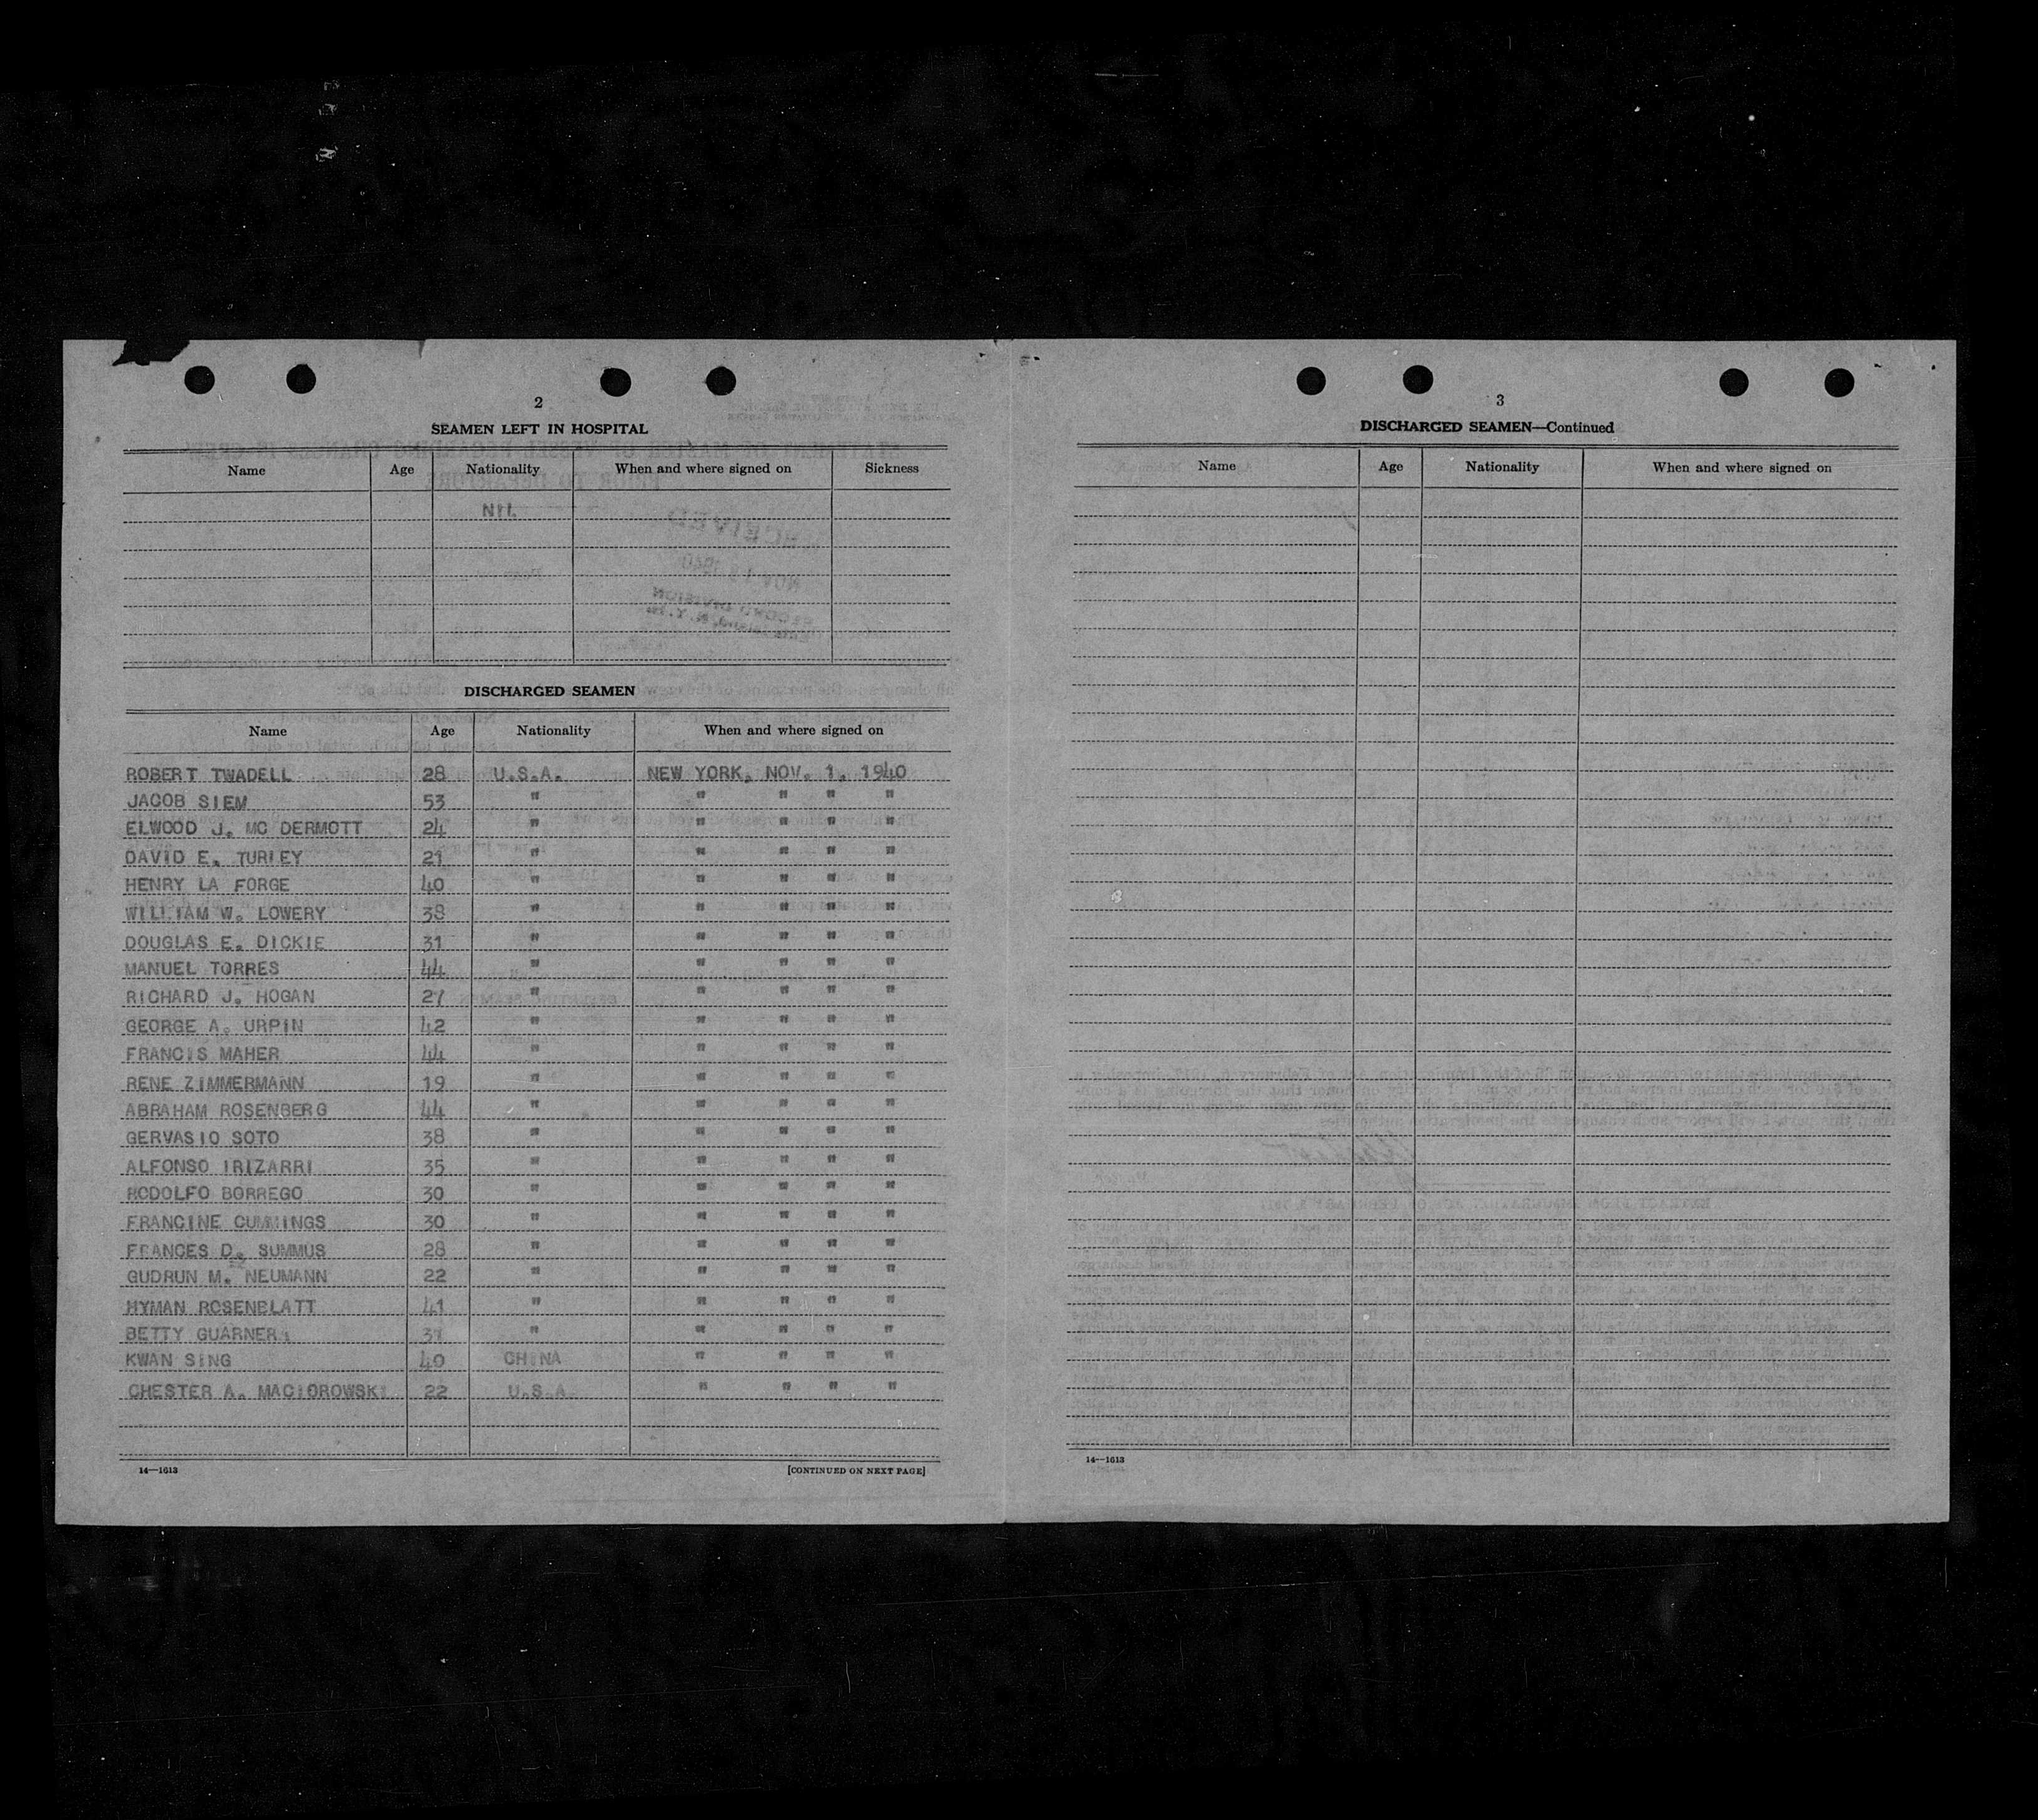 2
SEAMEN LEFT IN HOSPITAL
Name Age Nationality When and where signed on Sickness
NIL
DISCHARGED SEAMEN
Name Age Nationality When and where signed on
ROBERT TWADELL 28 U.S.A. NEW YORK, NOV. 1, 1940
JACOB SIEM 53 " " " " "
ELWOOD J. MC DERMOTT 24 " " " " "
DAVID E. TURLEY 21 " " " " "
HENRY LA FORGE 40 " " " " "
WILLIAM W. LOWERY 38 " " " " "
DOUGLAS E. DICKIE 31 " " " " "
MANUEL TORRES 44 " " " " "
RICHARD J. HOGAN 27 " " " " "
GEORGE A. URPIN 42 " " " " "
FRANCIS MAHER 44 " " " " "
RENE ZIMMERMANN 19 " " " " "
ABRAHAM ROSENBERG 44 " " " " "
GERVASIO SOTO 38 " " " " "
ALFONSO IRIZARRI 35 " " " " "
RODOLFO BORREGO 30 " " " " "
FRANCINE CUMMINGS 30 " " " " "
FRANCES D. SUMMUS 28 " " " " "
GUDRUN M. NEUMANN 22 " " " " "
HYMAN ROSENBLATT 41 " " " " "
BETTY GUARNERI " " " " "
KWAN SING 40 CHINA " " " "
CHESTER A. MACIOROWSKI 22 U.S.A. " " " "
14—1613 [CONTINUED ON NEXT PAGE]
3
DISCHARGED SEAMEN—Continued
Name Age Nationality When and where signed on
14—1613